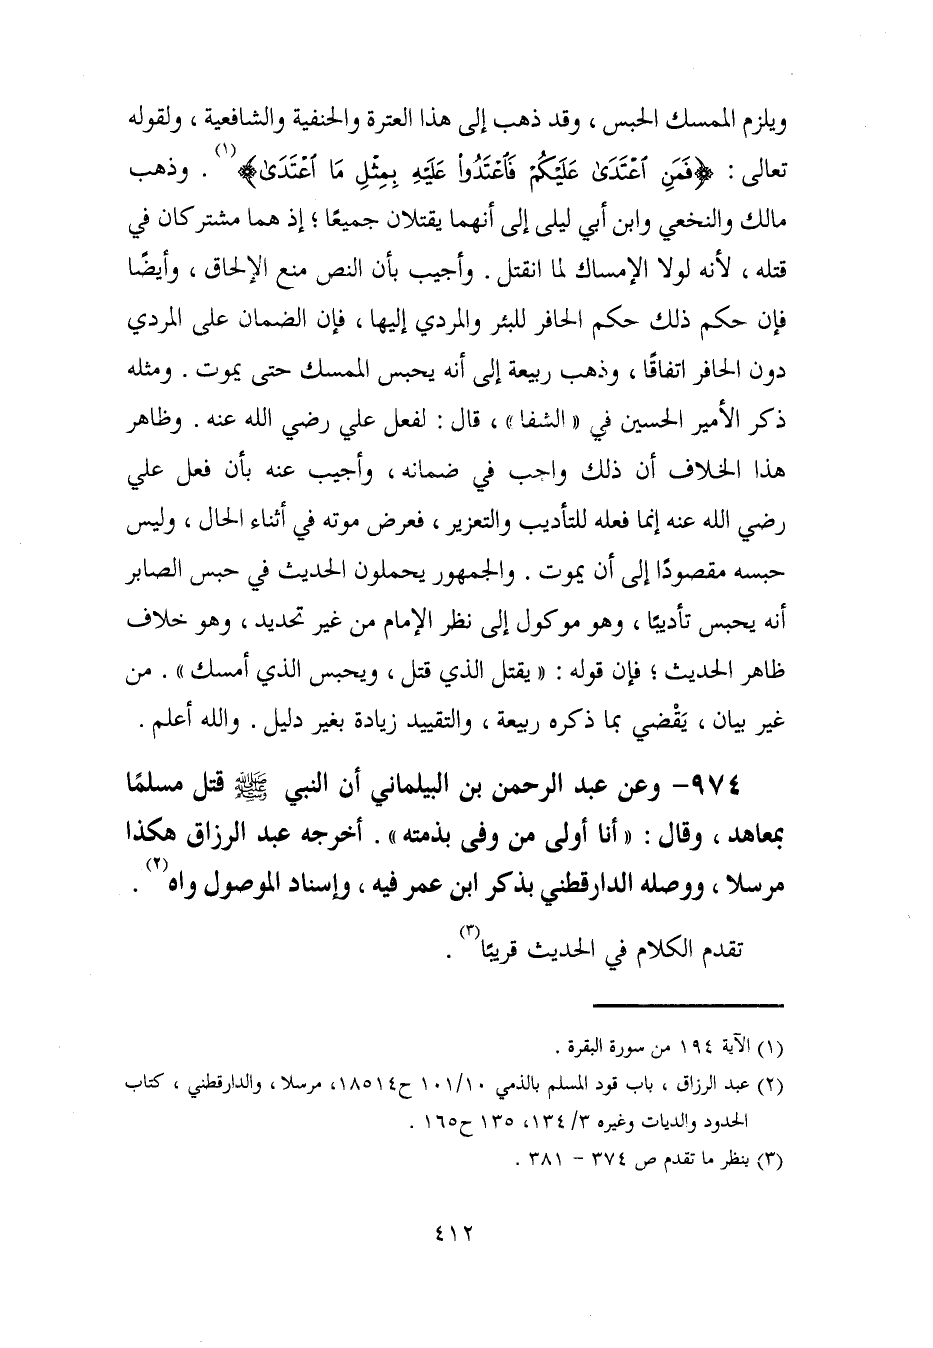 ويلزم الممسك الحبس ، وقد ذهب إلى هذا العترة والحنفية والشافعية ، ولقوله
تعالى : ﴿فَمَنِ ٱعْتَدَىٰ عَلَيْكُمْ فَٱعْتَدُوا۟ عَلَيْهِ بِمِثْلِ مَا ٱعْتَدَىٰ﴾(١) . وذهب
مالك والنخعي وابن أبي ليلى إلى أنهما يقتلان جميعًا ؛ إذ هما مشتركان في
قتله ، لأنه لولا الإمساك لما انقتل . وأجيب بأن النص منع الإلحاق ، وأيضًا
فإن حكم ذلك حكم الحافر للبئر والمردي إليها ، فإن الضمان على المردي
دون الحافر اتفاقًا ، وذهب ربيعة إلى أنه يحبس الممسك حتى يموت . ومثله
ذكر الأمير الحسين في « الشفا » ، قال : لفعل علي رضي الله عنه . وظاهر
هذا الخلاف أن ذلك واجب في ضمانه ، وأجيب عنه بأن فعل علي
رضي الله عنه إنما فعله للتأديب والتعزير ، فعرض موته في أثناء الحال ، وليس
حبسه مقصودًا إلى أن يموت . والجمهور يحملون الحديث في حبس الصابر
أنه يحبس تأديبًا ، وهو موكول إلى نظر الإمام من غير تحديد ، وهو خلاف
ظاهر الحديث ؛ فإن قوله : « يقتل الذي قتل ، ويحبس الذي أمسك » . من
غير بيان ، يَقْضي بما ذكره ربيعة ، والتقييد زيادة بغير دليل . والله أعلم .
٩٧٤- وعن عبد الرحمن بن البيلماني أن النبي ﷺ قتل مسلمًا
بمعاهد ، وقال : « أنا أولى من وفى بذمته » . أخرجه عبد الرزاق هكذا
مرسلا ، ووصله الدارقطني بذكر ابن عمر فيه ، وإسناد الموصول واه(٢) .
تقدم الكلام في الحديث قريبًا(٣) .
(١) الآية ١٩٤ من سورة البقرة .
(٢) عبد الرزاق ، باب قود المسلم بالذمي ١٠١/١٠ ح١٨٥١٤، مرسلا ، والدارقطني ، كتاب
الحدود والديات وغيره ٣/ ١٣٤، ١٣٥ ح١٦٥ .
(٣) ينظر ما تقدم ص ٣٧٤ - ٣٨١ .
٤١٢